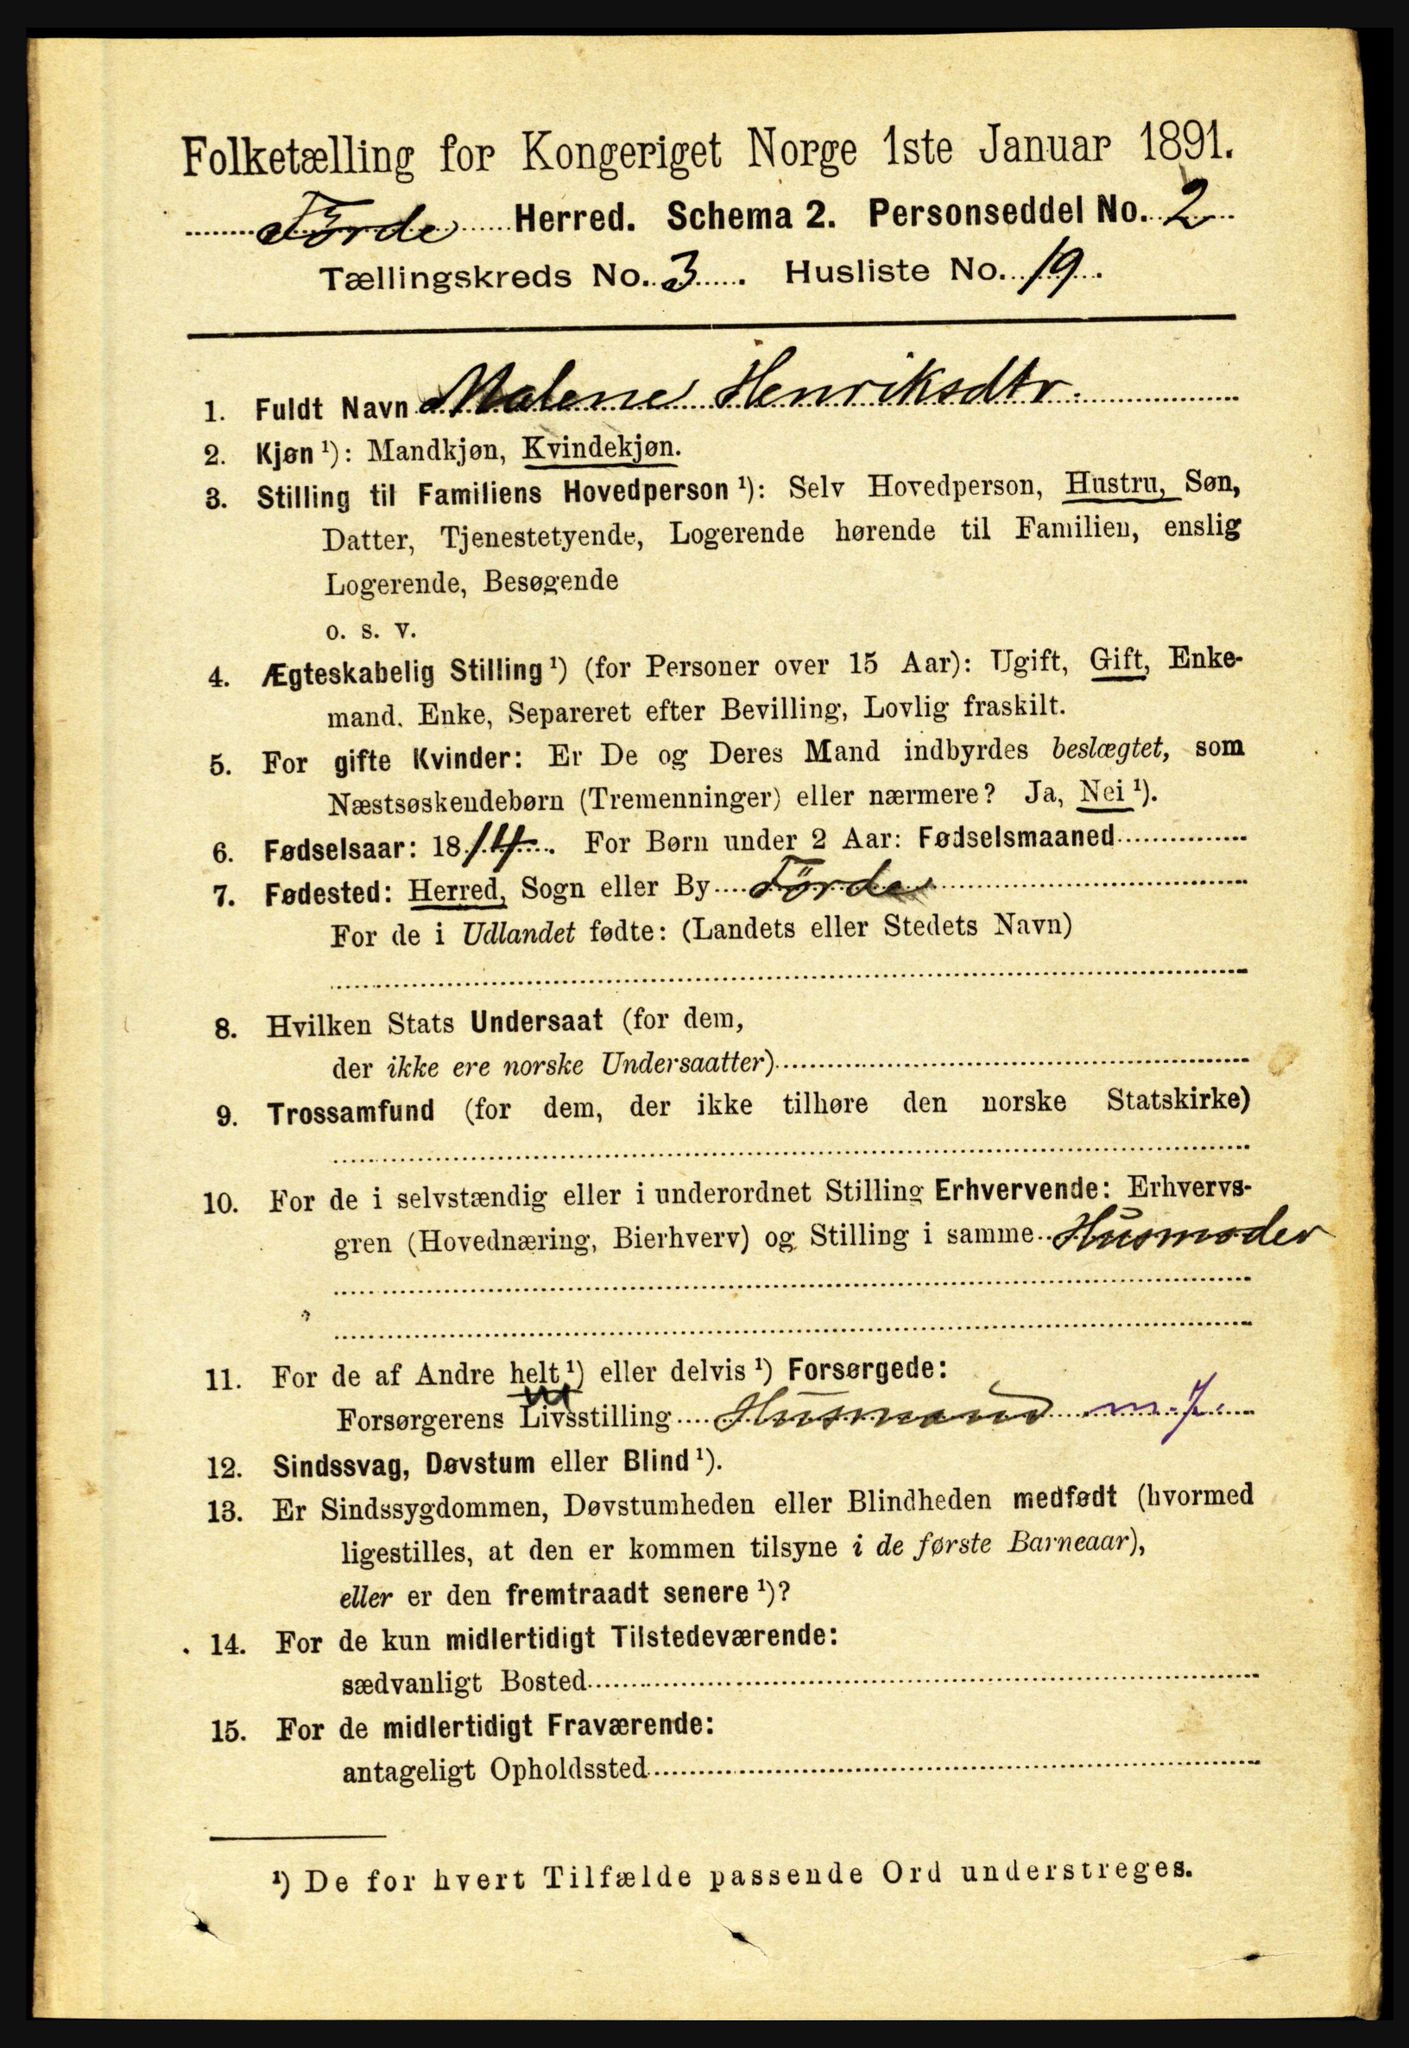 Folketælling for Kongeriget Norge 1ste Januar 1891.
Förde Herred. Schema 2. Personseddel No. 2
Tællingskreds No. 3. Husliste No. 19.
1. Fuldt Navn Malene Henriksdtr.
2. Kjøn ¹): Mandkjøn, Kvindekjøn.
3. Stilling til Familiens Hovedperson ¹): Selv Hovedperson, Hustru, Søn,
Datter, Tjenestetyende, Logerende hørende til Familien, enslig
Logerende, Besøgende
o. s. v.
4. Ægteskabelig Stilling ¹) (for Personer over 15 Aar): Ugift, Gift, Enke-
mand, Enke, Separeret efter Bevilling, Lovlig fraskilt.
5. For gifte Kvinder: Er De og Deres Mand indbyrdes beslægtet, som
Næstsøskendebørn (Tremenninger) eller nærmere? Ja, Nei ¹).
6. Fødselsaar: 1814. For Børn under 2 Aar: Fødselsmaaned
7. Fødested: Herred, Sogn eller By Förde
For de i Udlandet fødte: (Landets eller Stedets Navn)
8. Hvilken Stats Undersaat (for dem,
der ikke ere norske Undersaatter)
9. Trossamfund (for dem, der ikke tilhøre den norske Statskirke)
10. For de i selvstændig eller i underordnet Stilling Erhvervende: Erhvervs-
gren (Hovednæring, Bierhverv) og Stilling i samme Husmoder
11. For de af Andre helt ¹) eller delvis ¹) Forsørgede:
Forsørgerens Livsstilling Husmand m. J.
12. Sindssvag, Døvstum eller Blind ¹).
13. Er Sindssygdommen, Døvstumheden eller Blindheden medfødt (hvormed
ligestilles, at den er kommen tilsyne i de første Barneaar),
eller er den fremtraadt senere ¹)?
14. For de kun midlertidigt Tilstedeværende:
sædvanligt Bosted
15. For de midlertidigt Fraværende:
antageligt Opholdssted
¹) De for hvert Tilfælde passende Ord understreges.